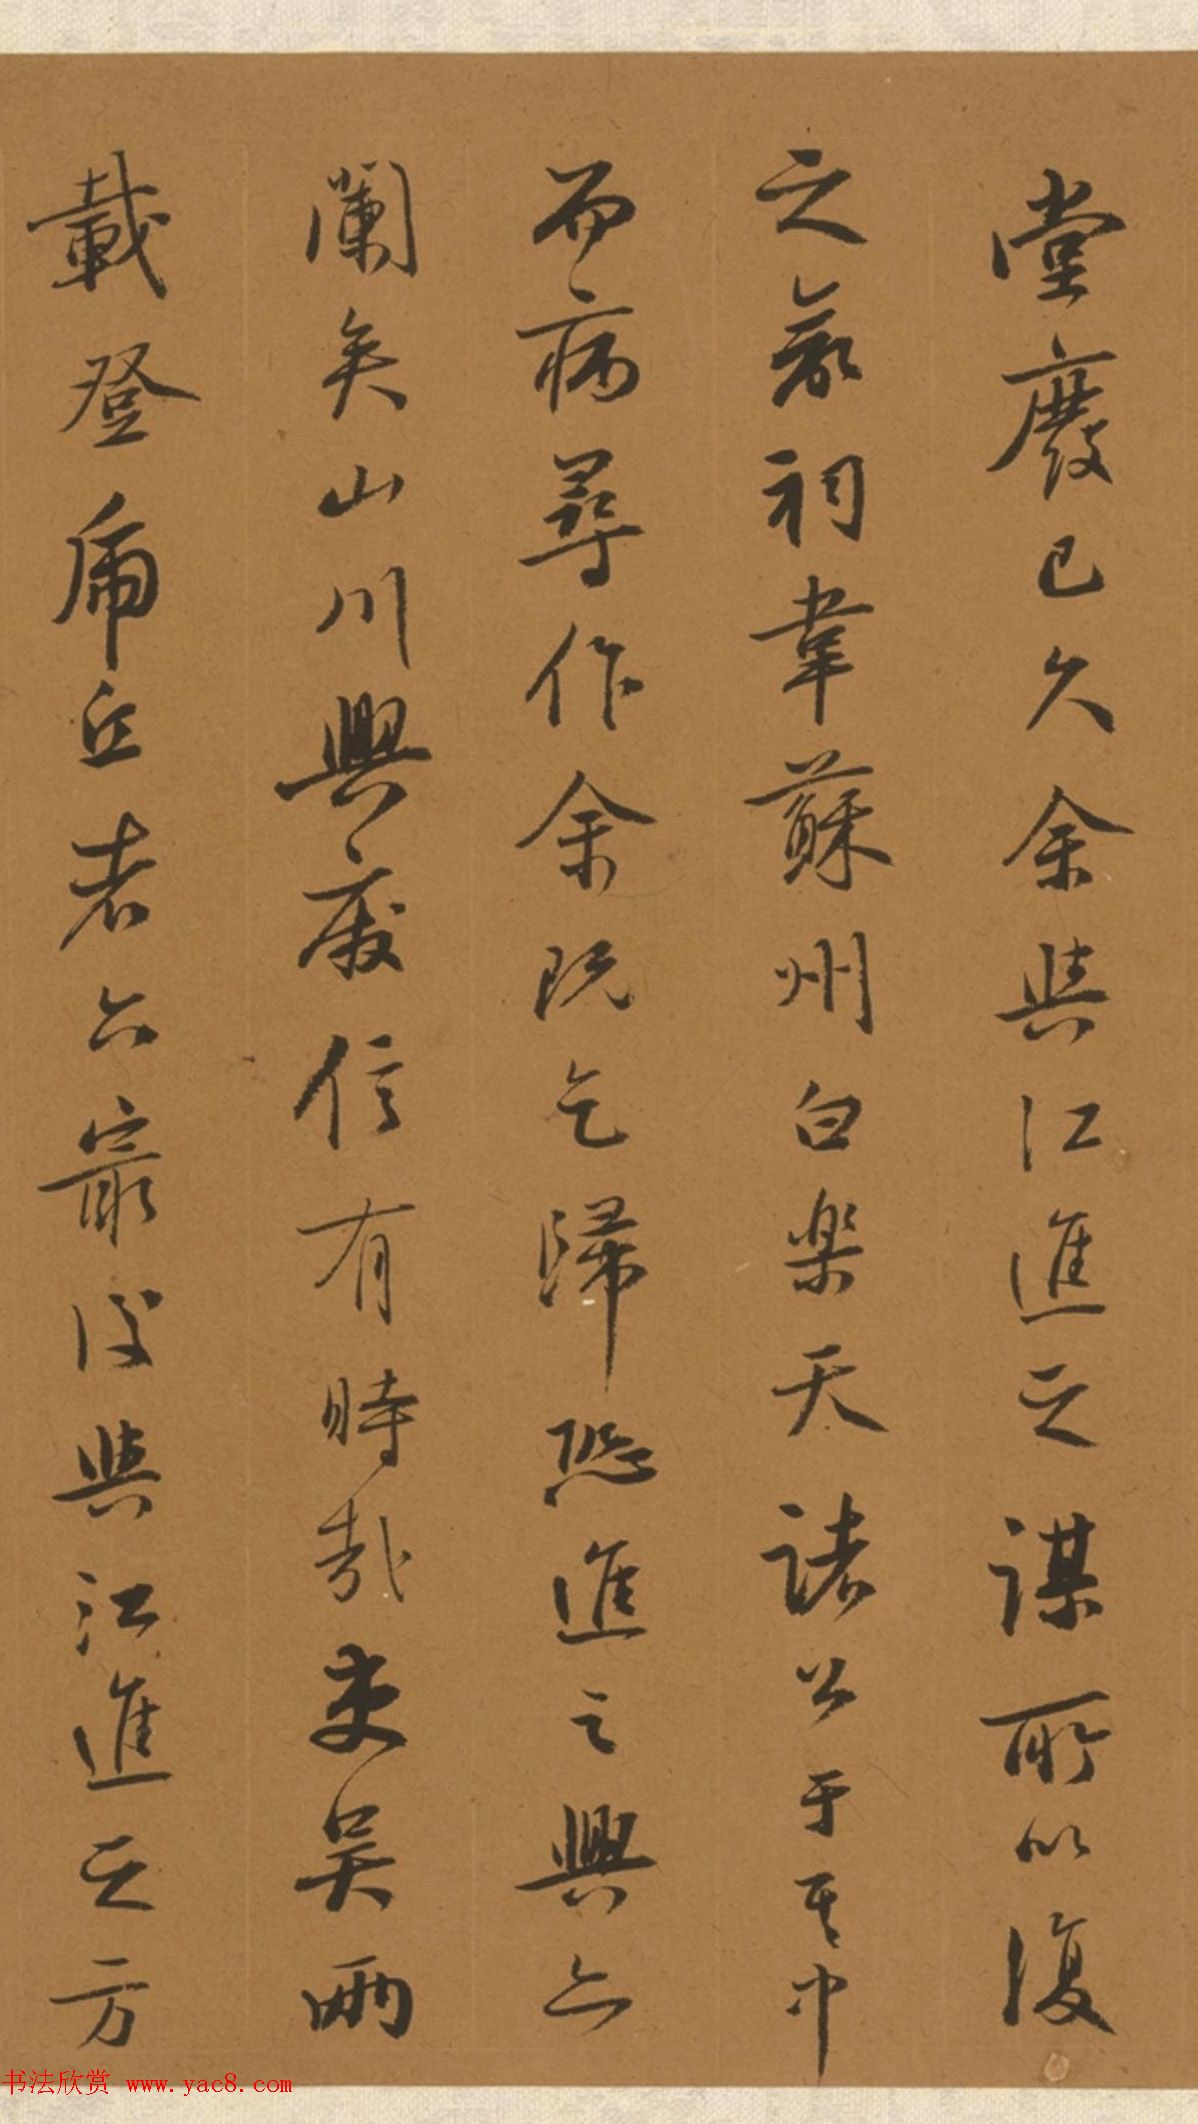 堂廢已久余與江進之謀所以復
之兼祠韋蘇州白樂天諸公于其中
而病尋作余既乞歸恐進之興亦
闌矣山川興廢信有時哉吏吳兩
載登虎丘者六最後與江進之方
书法欣赏 www.yac8.com